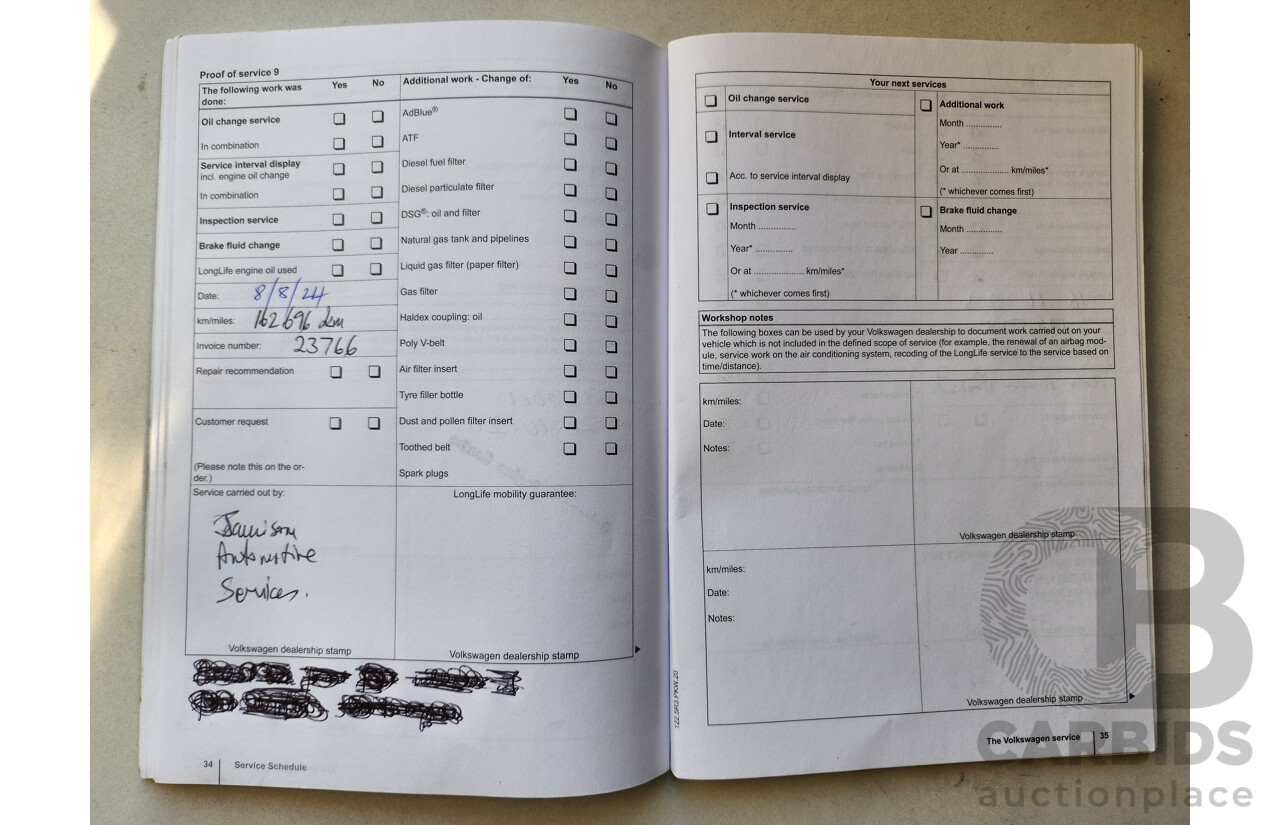 Proof of service 9
The following work was done: Yes No
Oil change service
In combination
Service interval display
incl. engine oil change
In combination
Inspection service
Brake fluid change
LongLife engine oil used
Date: 8/8/24
km/miles: 162696 km
Invoice number: 23766
Repair recommendation
Customer request
(Please note this on the or-
der.)
Service carried out by:
Jamison
Automotive
Services.
Volkswagen dealership stamp
Additional work - Change of: Yes No
AdBlue®
ATF
Diesel fuel filter
Diesel particulate filter
DSG®: oil and filter
Natural gas tank and pipelines
Liquid gas filter (paper filter)
Gas filter
Haldex coupling: oil
Poly V-belt
Air filter insert
Tyre filler bottle
Dust and pollen filter insert
Toothed belt
Spark plugs
LongLife mobility guarantee:
Volkswagen dealership stamp
34 Service Schedule
Your next services
Oil change service
Interval service
Acc. to service interval display
Additional work
Month ..............
Year* ..............
Or at ................... km/miles*
(* whichever comes first)
Inspection service
Month ..............
Year* ..............
Or at ................... km/miles*
(* whichever comes first)
Brake fluid change
Month ..............
Year ..............
Workshop notes
The following boxes can be used by your Volkswagen dealership to document work carried out on your
vehicle which is not included in the defined scope of service (for example, the renewal of an airbag mod-
ule, service work on the air conditioning system, recoding of the LongLife service to the service based on
time/distance).
km/miles:
Date:
Notes:
Volkswagen dealership stamp
km/miles:
Date:
Notes:
Volkswagen dealership stamp
122.5R3.PKW.20
The Volkswagen service 35
CB
CARBIDS
auctionplace